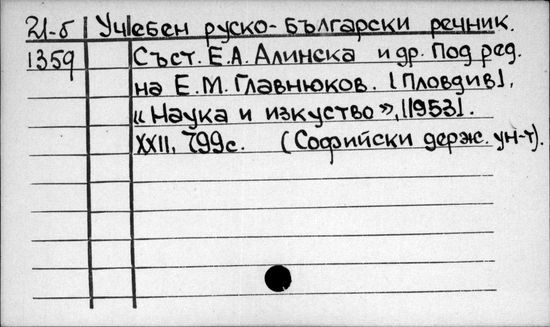 21-5 Учебен руско-български речник.
1359 Съст. Е.А. Алинска и др. Под ред.
на Е.М. Главнюков. [Пловдив],
«Наука и изкуство», [1953].
XXII, 799с. (Софийски держ. ун-т).